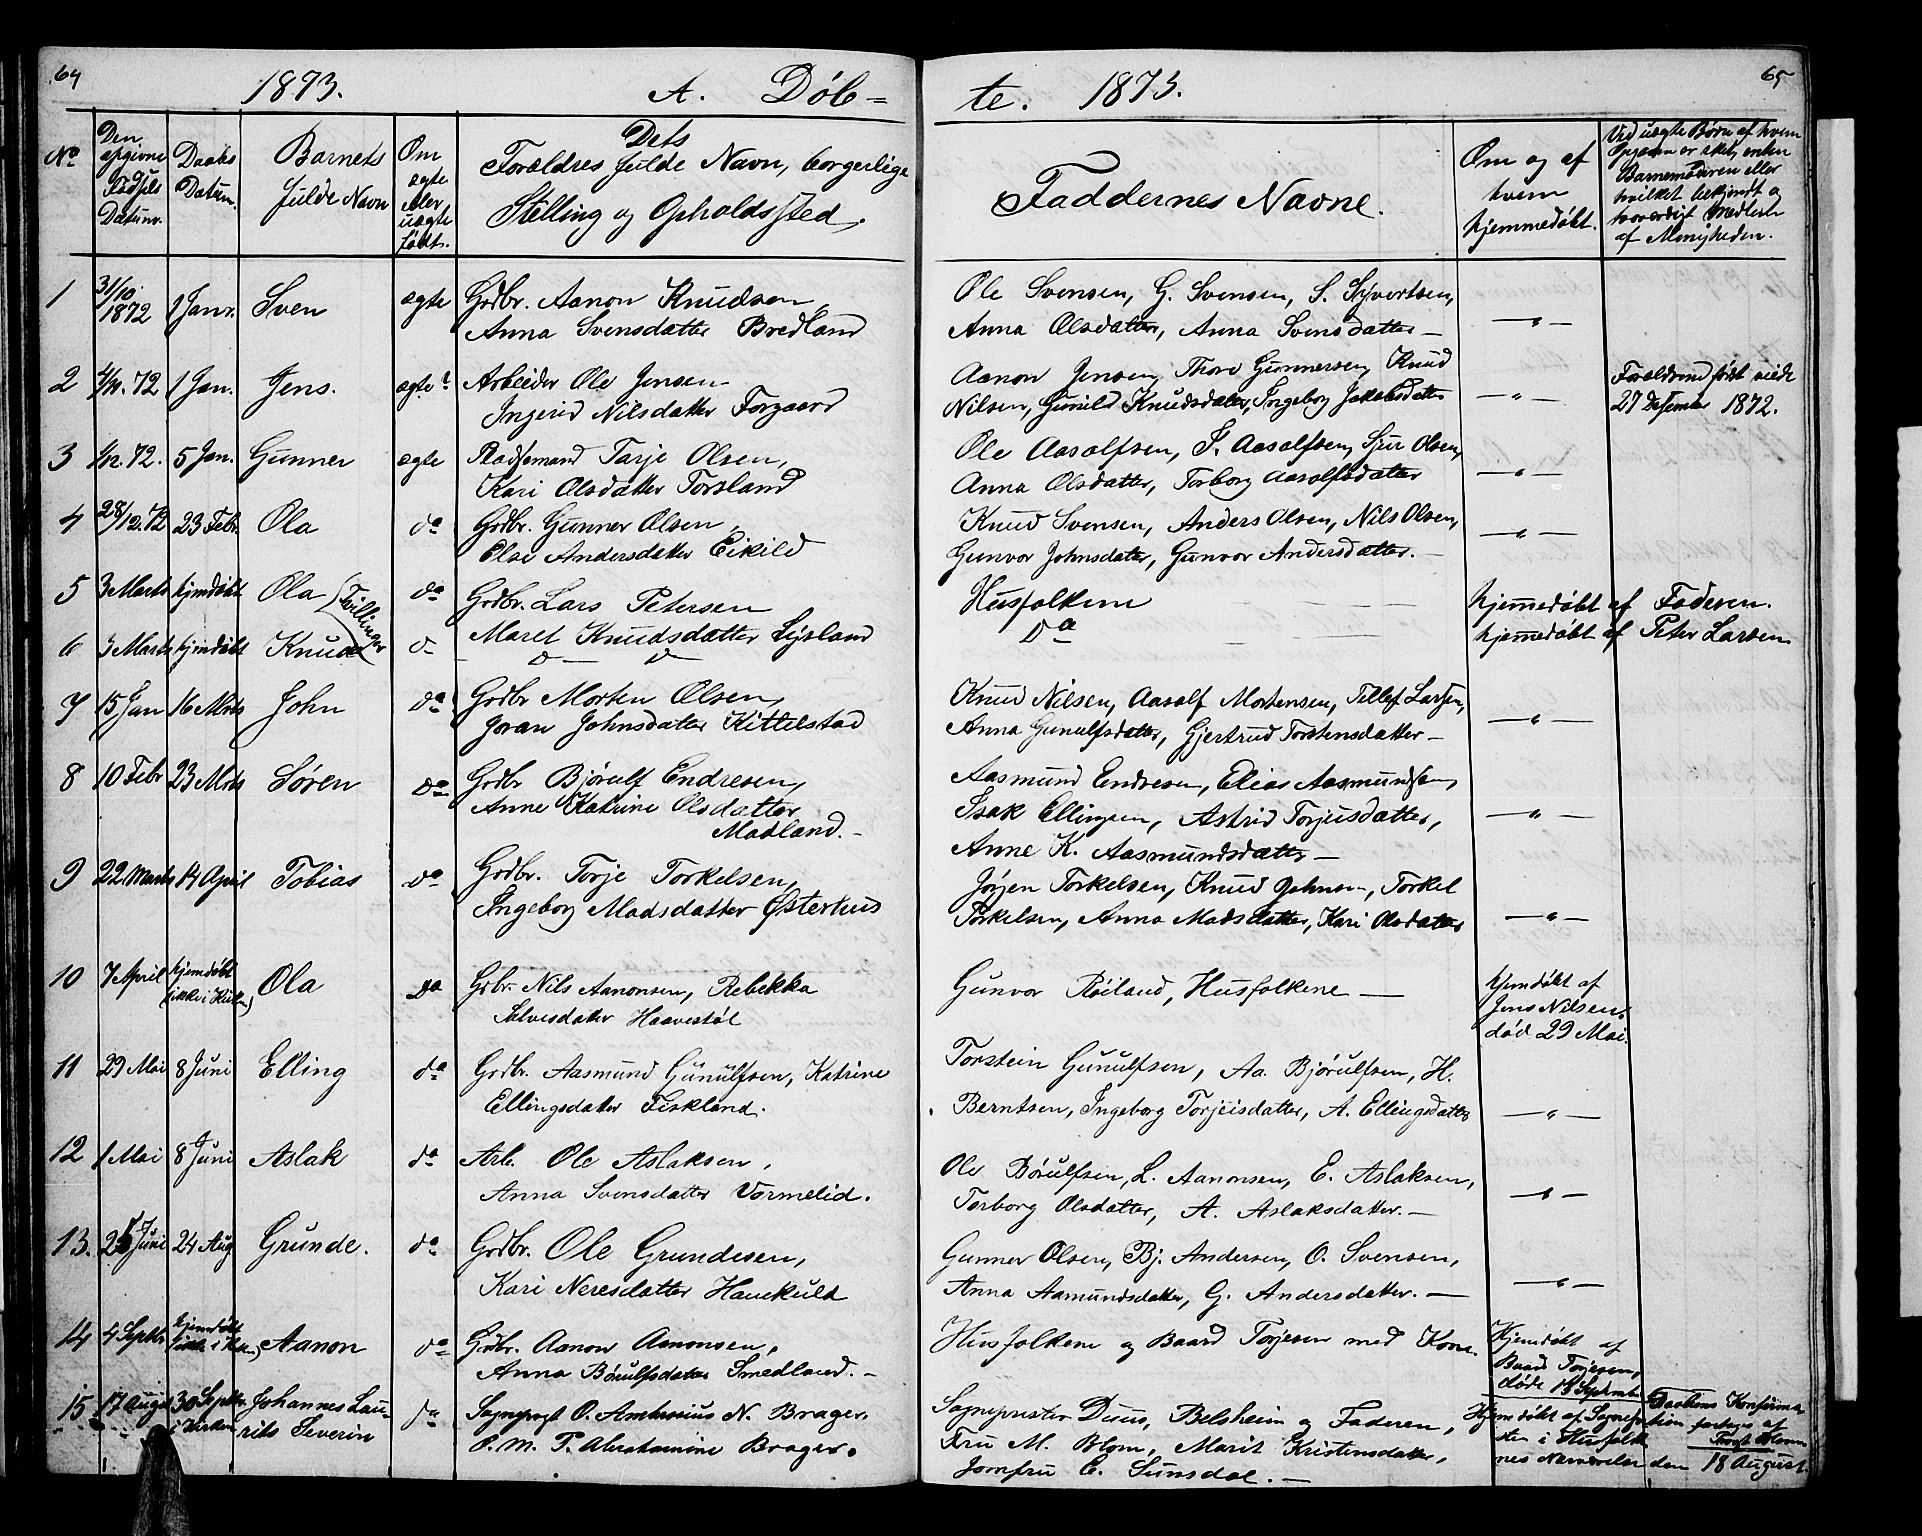 64 1873. A. Døb-
te. 1873. 65
No
Den opgivne Fødsels Datum.
Daabs Datum.
Barnets fulde Navn
Om ægte eller uægte født.
Dets Forældres fulde Navn, borgerlige Stilling og Opholdssted.
Faddernes Navne.
Om og af hvem hjemmedøbt.
Ved uægte Børn af hvem Opgaven er skeet, enten Barnemoderen eller hvilket bekjendt og troværdigt Medlem af Menigheden.
1 31/10 1872 1 Janr. Sven ægte Grdbr. Aanon Knudsen,
Anna Svensdatter Bredland
Ole Svensen, G. Svensen, S. Syvertsen,
Anna Olsdatter, Anna Svensdatter — — " —
2 4/11. 72 1 Jan. Jens. ægte Arbeider Ole Jensen
Ingerid Nilsdatter Forgaard
Aanon Jensen, Thore Gunnersen, Knud
Nilsen, Gunild Knudsdatter, Ingeborg Jakobsdatter — " —
Forældrene født viede
27 Desember 1872.
3 1/12. 72. 5 Jan. Gunner ægte Pladsemand Tarje Olsen,
Kari Olsdatter Torsland
Ole Aasolfsen, T. Aasolfsen, Sjur Olsen,
Anna Olsdatter, Torborg Aasolfsdatter — " —
4 28/12. 72 23 Febr. Ola do Grdbr. Gunner Olsen,
Else Andersdatter Eikild
Knud Svensen, Anders Olsen, Nils Olsen,
Gunvor Johnsdatter, Gunvor Andersdatter. — — " —
5 3 Marts hjemdøbt Ola (Tvillinger do Grdbr. Lars Petersen
Husfolkene hjemmedøbt af Faderen.
6 3 Marts hjemdøbt Knud d— Maret Knudsdatter Lysland
Do hjemmedøbt af Peter Larsen
7 15 Jan 16 Mrts John do Grdbr Morten Olsen,
Joran Johnsdatter Kittelstad
Knud Nilsen, Aasolf Mortensen, Tellef Larsen,
Anna Gunulfsdatter, Gjertrud Torstensdatter — — " —
8 10 Febr 23 Mrts Søren do Grdbr Bjørulf Endresen,
Anne Katrine Olsdatter
Madland. —
Aasmund Endresen, Elias Aasmundsen,
Isak Ellingsen, Astrid Torjusdatter, — " —
Anne K. Aasmundsdatter —
9 22 Marts 14 April Tobias do Grdbr. Torje Torkelsen,
Ingeborg Madsdatter Østerhus
Jørjen Torkelsen, Knud Johnsen, Torkel
Torkelsen, Anna Madsdatter, Kari Olsdatter — " —
10 7 April hjemdøbt (ikke i Kirken) Ola Do Grbr. Nils Aanonsen, Rebekka
Salvesdatter Haavestøl
Gunvor Røiland, Husfolkene —
hjemdøbt af
Jens Nilsen.
død 29 Mai.
11 29 Mai 8 Juni Elling do Grdbr. Aasmund Gunulfsen, Katrine
Ellingsdatter Fiskland.
Torstein Gunulfsen, Aa. Bjørulfsen, H.
Berntsen, Ingeborg Torjeisdatter, A. Ellingsdatter — " —
12 1 Mai 8 Juni Aslak do Arb. Ole Aslaksen,
Anna Svensdatter Vormelid.
Ole Børulfsen, L. Aanonsen, E. Aslaksen,
Torborg Olsdatter, A. Aslaksdatter. — — " —
13. Juni 24 Aug Grunde. do Grdbr. Ole Grundesen,
Kari Neresdatter Haukuld
Gunner Olsen, Bj. Andersen, O. Svensen,
Anna Aamundsdatter, G. Andersdatter. — — " —
14 4 Septbr. hjemdøbt Aanon do Grdbr. Aanon Aanonsen,
Anna Børulfsdatter Smedland. —
Husfolkene og Baard Torjesen med Kone.
Hjemdøbt af
Baard Torjesen,
døde 13 September
15 17 August 30 Septbr. i Kirken Johannes Lau-
rits Severin do Sognepogt O. Ambrosius N. Brager.
O. M. P. Abrahamine Brager.
Sognepræster Duus, Belsheim og Faderen,
Fru M. Blom, Marit Kristensdatter,
Jomfru C. Sunsdal. —
Hjemdøbt af Sognepræ-
sten i Husfolk
nes Nærværelse den 18 August.
Daabens Konfirma-
tion foretages af
Provst Blom